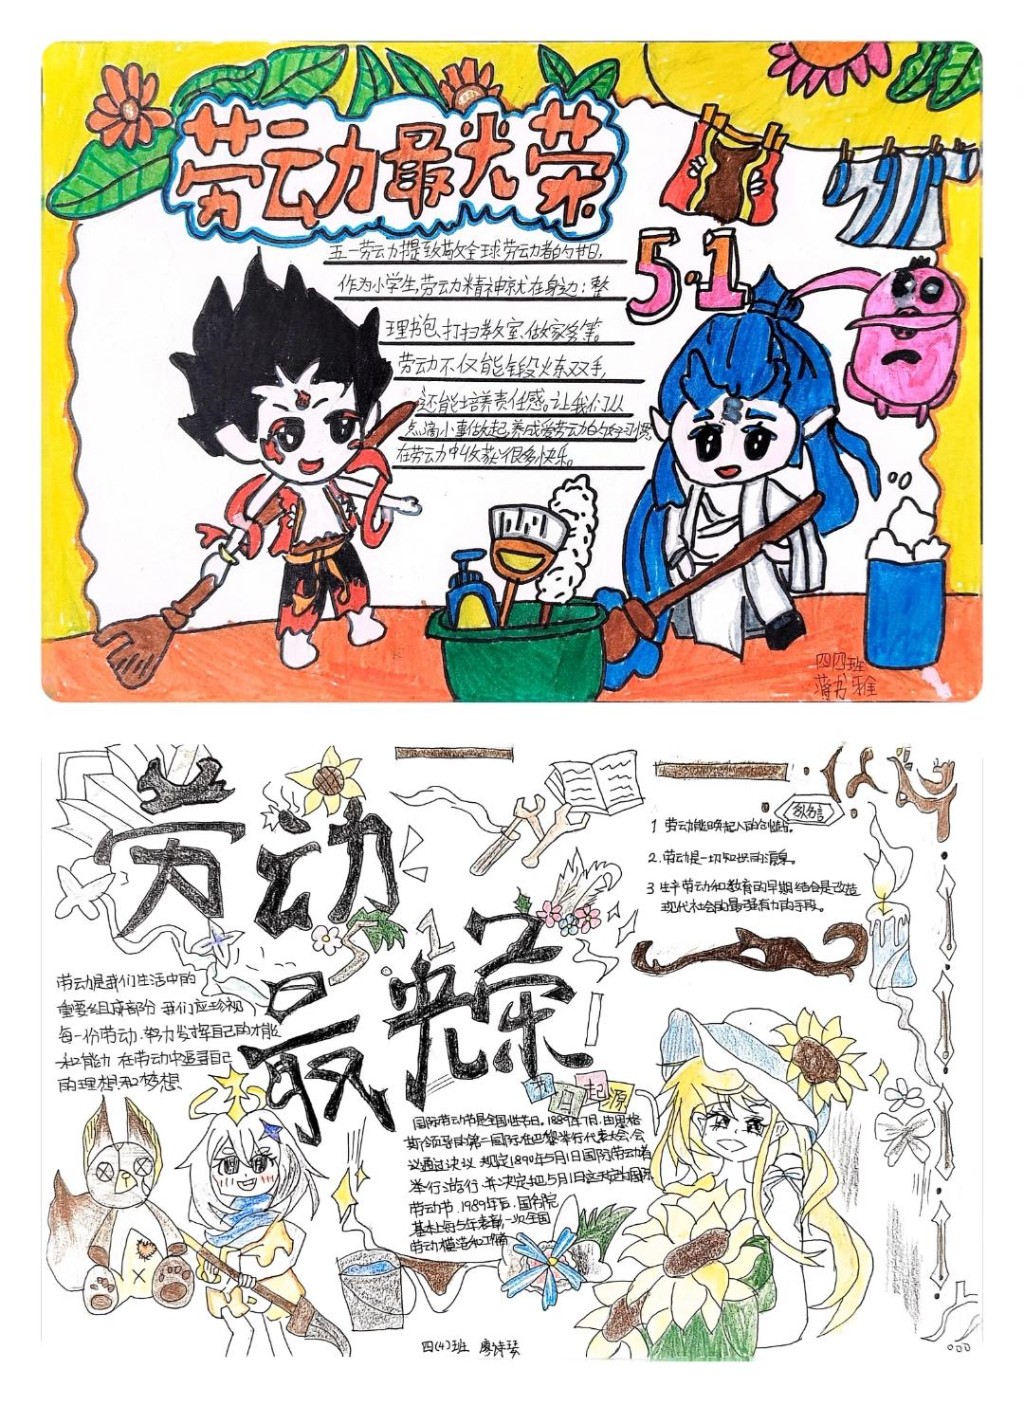 劳动力最光荣
5·1
五一劳动力提致敬全球劳动者的节日,
作为小学生,劳动力精神京就在身边:整
理书包、打扫教室、做家务等。
劳动不仅能锻炼双手,
还能培养责任感。让我们从
点滴小事做起,养成爱劳动的好习惯,
在劳动中收获很多快乐。
四四班
蒋书雅
劳动
最光荣
51
名言
1 劳动能唤起人的创造。
2. 劳动是一切知识的源泉。
3 生产劳动和教育的早期结合是改造
现代社会的最强有力的手段。
劳动是我们生活中的
重要组成部分 我们应珍视
每一份劳动.努力发挥自己的才能
和能力 在劳动中追寻自己
的理想和梦想
节日起源
国际劳动节是全国性节日.1889年7月,由恩格
斯领导的第二国际在巴黎举行代表大会,会
议通过决议 规定1890年5月1日国际劳动者
举行游行,并决定把5月1日这天定为国际
劳动节.1989年后,国务院
基本上每5年表彰一次全国
劳动模范和工作者
四(4)班 廖诗琴